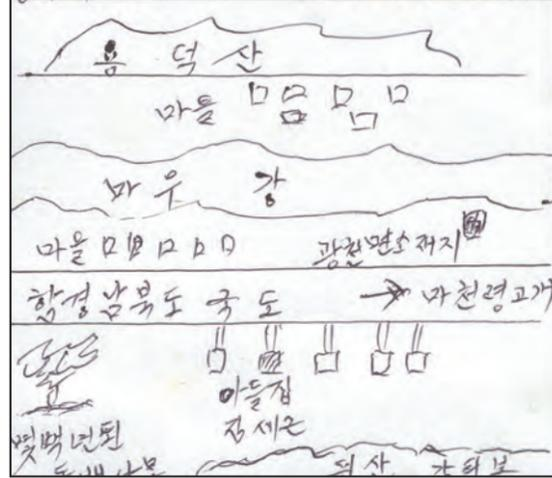 용 덕 산
마을
마 우 강
마을
광천면소재지
함경남북도 국도 → 마천령고개
아들집
김세근
몇백년된